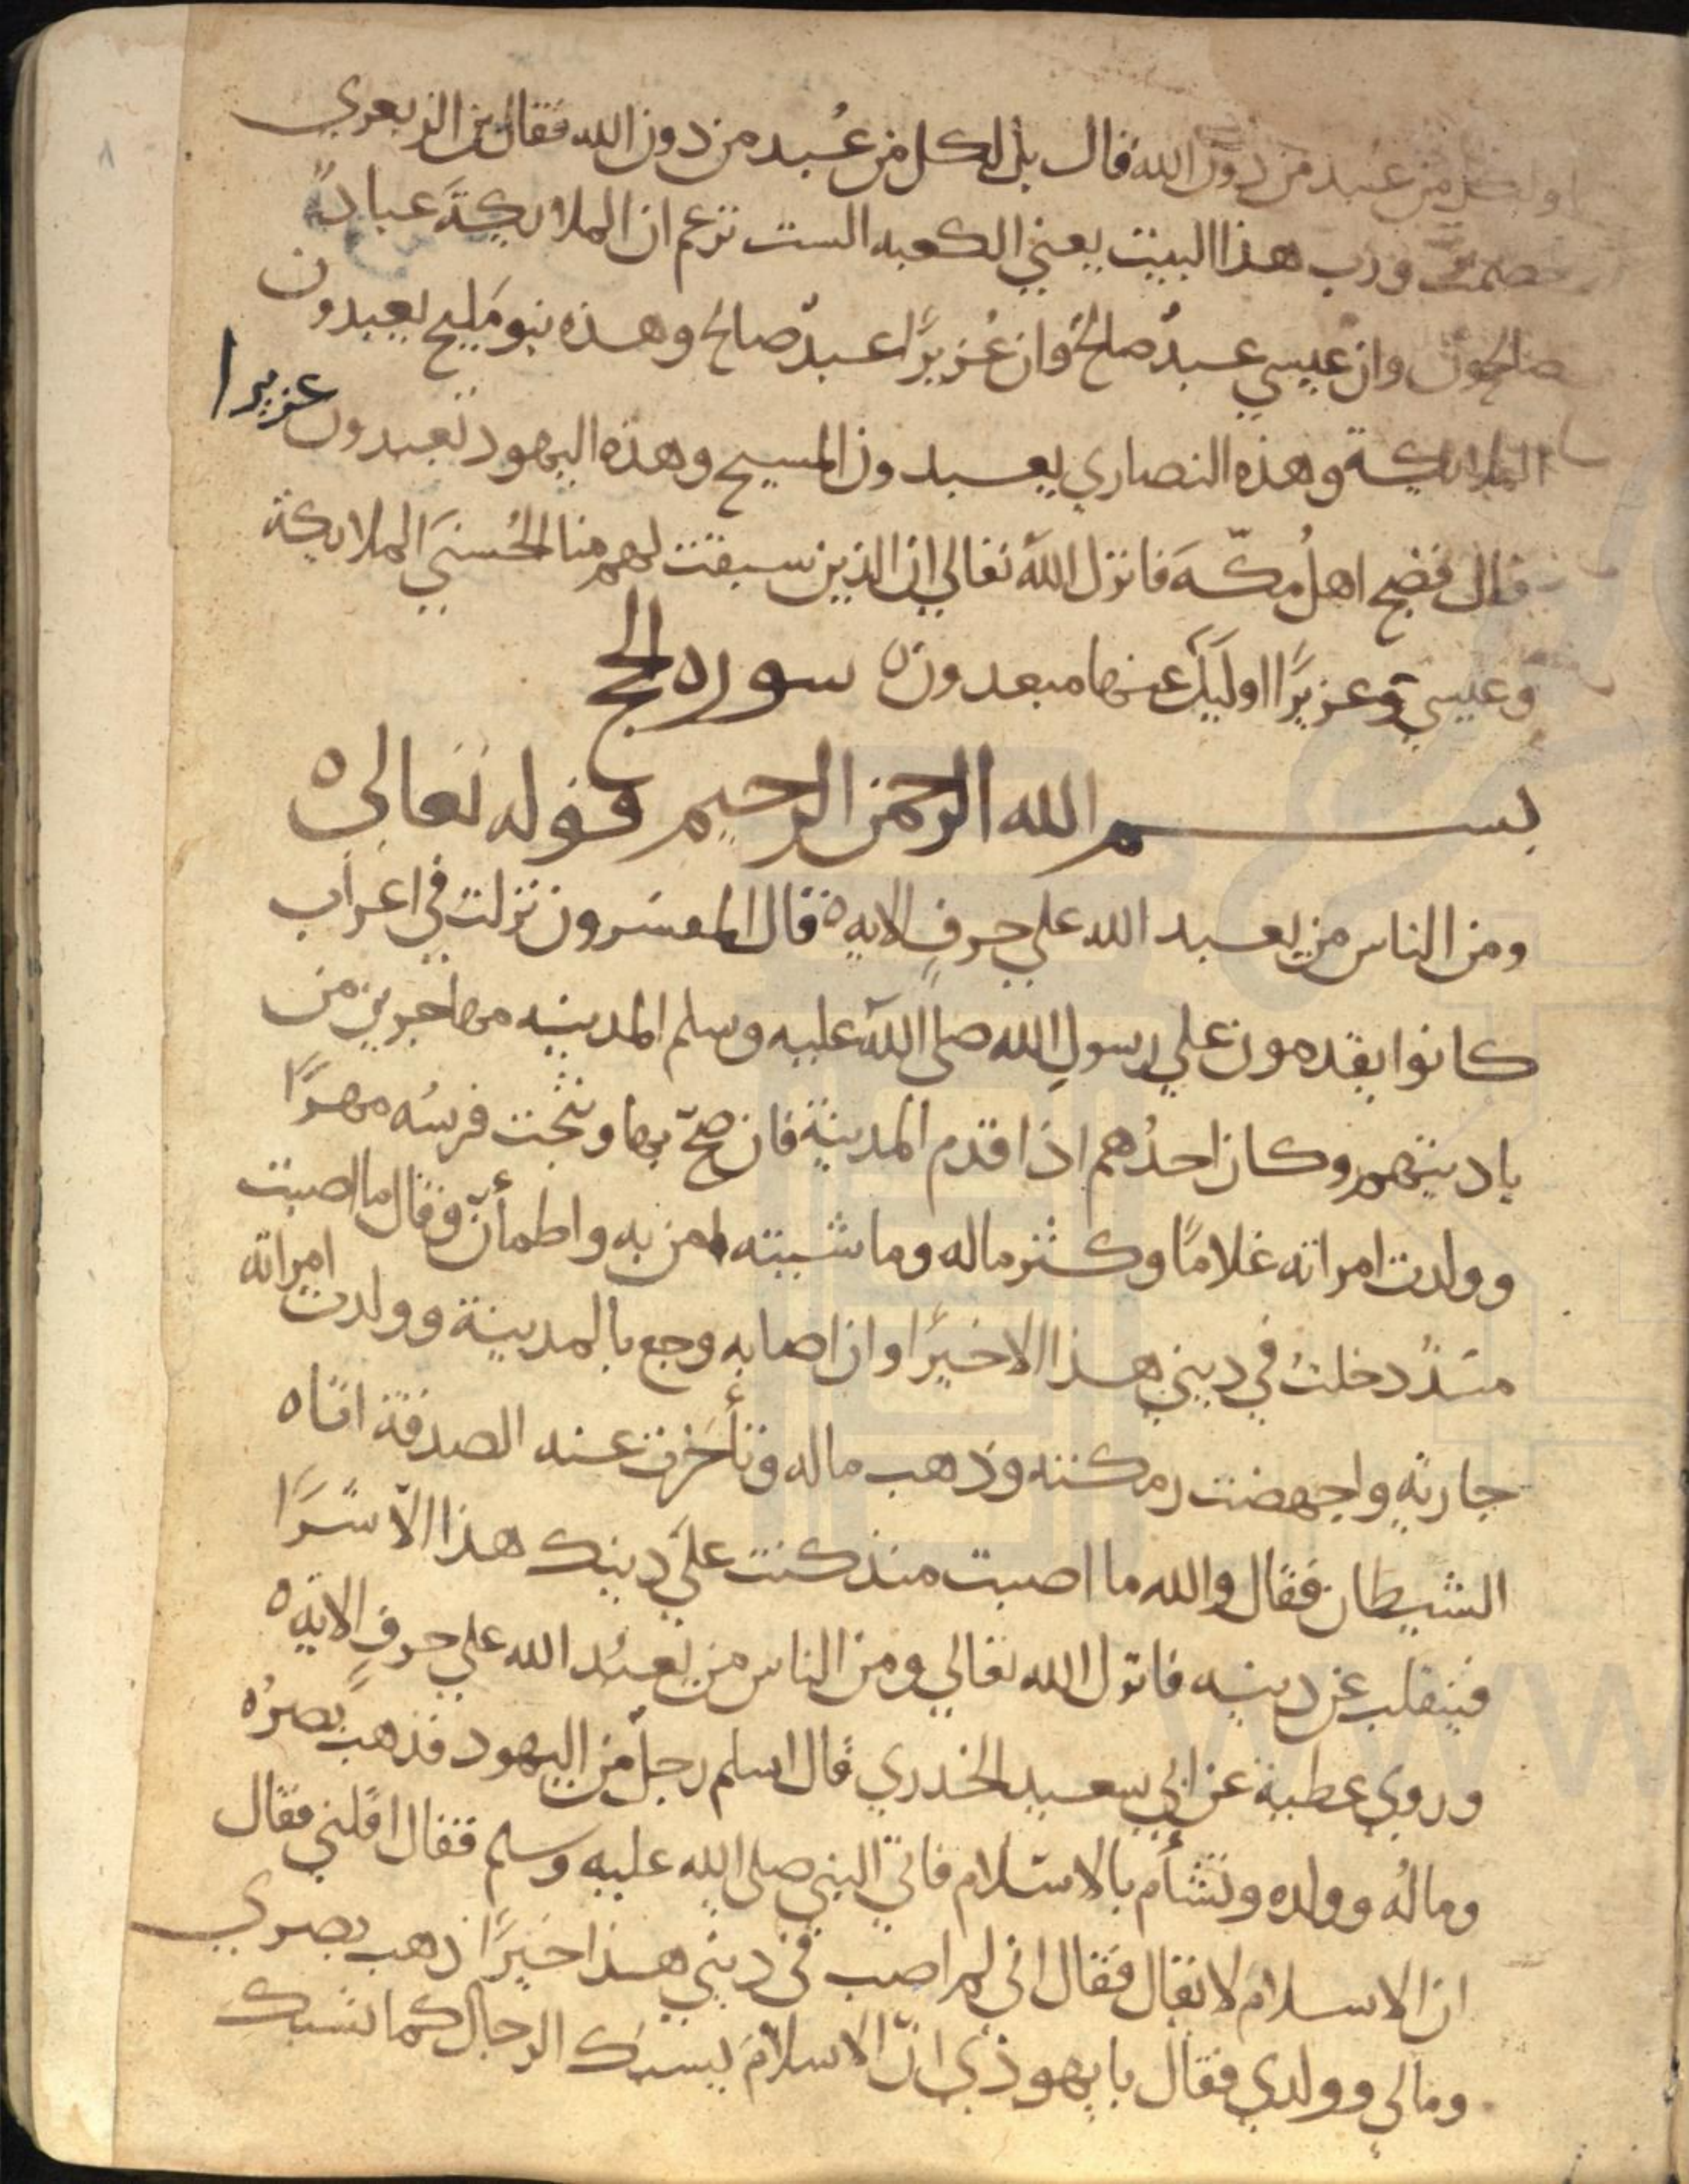 او لكل من عبد من دون الله قال بل لكل من عُبد من دون الله فقال بن الزبعري
خصمت ورب هذا البيت يعني الكعبه الست تزعم ان الملايكةَ عبادً
صالحون وان عيسي عبدٌ صالحٌ وان عُزيرًا عبدٌ صالح وهذه بنو مَليح يعبدون
الملايكة وهذه النصاري يعبدون المسيح وهذه اليهود تعبدون عزيرا
قال فضج اهلُ مكّة فانزل الله تعالي ان الذين سبقت لهم منا الحُسنيَ الملايكة
وعيسي وعزيرًا اوليك عنها مبعدون ه سوره الحج
بسم الله الرحمن الرحيم قوله تعالى ه
ومن الناس من يعبد الله علي حرفٍ الايه ه قال المفسرون نزلت في اعراب
كانوا يقدمون علي رسولِ الله صلى الله عليه وسلم المدينه مهاجرين من
باديتهم وكان احدُهم اذا قدم المدينة فان صحّ بها ونتجت فرسُه مهرًا
وولدت امراته غلامًا وكثر ماله وماشيته امن به واطمأنّ وقال ما اصبت
منذُ دخلتُ في ديني هذا الا خيرًا وان اصابه وجع بالمدينة وولدت امراته
جاريه واجهضت رمكته وذهب ماله وتأخرت عنه الصدقة اتاه
الشيطان فقال والله ما اصبت منذ كنت عليَ دينك هذا الّا شرًا
فينقلب عن دينه فانزل الله تعالي ومن الناس من يعبُد الله علي حرفٍ الايه ه
وروي عطية عن ابي سعيد الخدري قال اسلم رجلٌ من اليهود فذهب بصرُه
ومالُه وولده وتشأم بالاسلام فاتيَ النبي صلى الله عليه وسلم فقال اقلني فقال
ان الاسلامَ لا يقال فقال اني لم اصب في ديني هذا خيرًا ذهب بصري
ومالي وولدي فقال يا يهودي انّ الاسلامَ يسبك الرجال كما تسبك